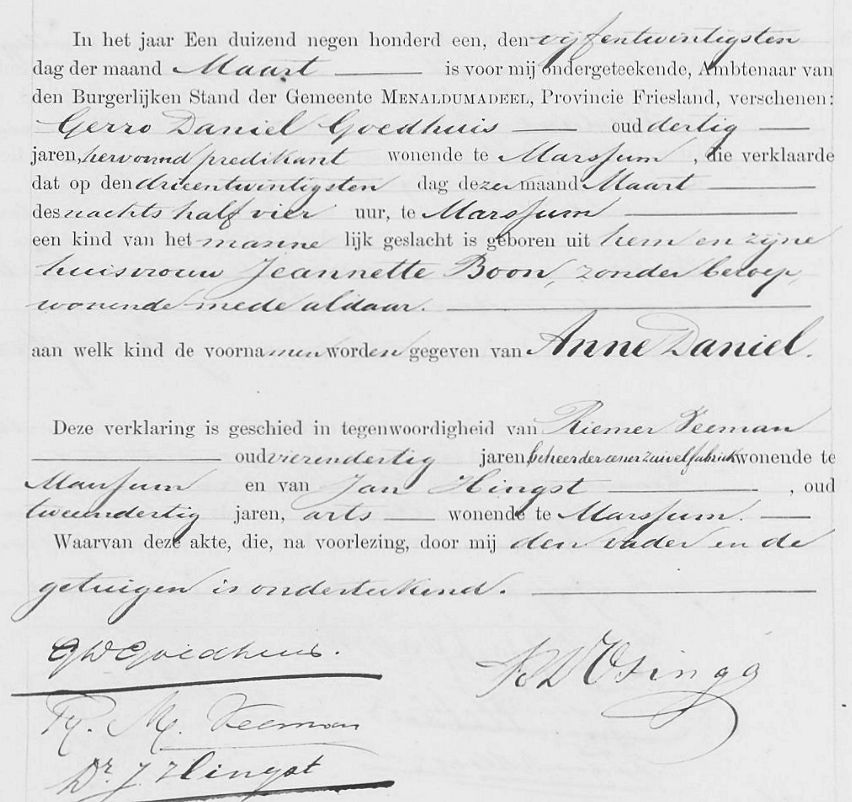 In het jaar Een duizend negen honderd een, den vijfentwintigsten
dag der maand Maart is voor mij ondergeteekende, Ambtenaar van
den Burgerlijken Stand der Gemeente MENALDUMADEEL, Provincie Friesland, verschenen:
Gerro Daniel Goedhuis oud dertig
jaren, hervormd predikant wonende te Marssum, die verklaarde
dat op den drieentwintigsten dag dezer maand Maart
des nachts half vier uur, te Marssum
een kind van het manne lijk geslacht is geboren uit hem en zijne
huisvrouw Jeannette Boon, zonder beroep,
wonende mede aldaar.
aan welk kind de voornamen worden gegeven van Anne Daniel.
Deze verklaring is geschied in tegenwoordigheid van Riemer Veeman
oud vierendertig jaren, beheerder eener zuivelfabriek wonende te
Marssum en van Jan Hingst, oud
tweeendertig jaren, arts wonende te Marssum.
Waarvan deze akte, die, na voorlezing, door mij den vader en de
getuigen is onderteekend.
GD Goedhuis.
Osinga
R. M. Veeman
Dr. J. Hingst